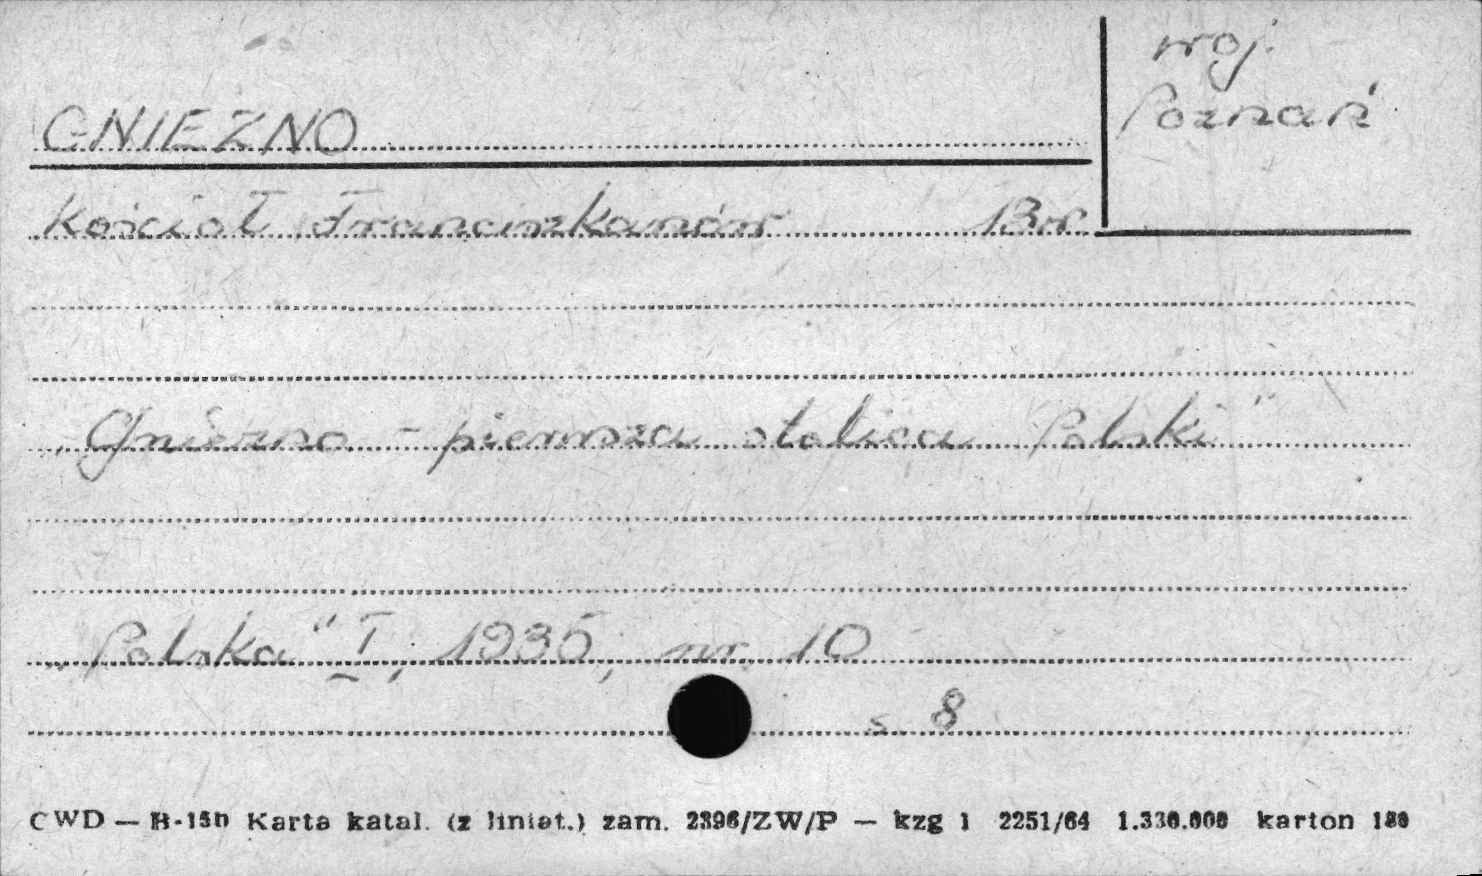 woj.
Poznań
GNIEZNO
Kościół Franciszkanów 13 w.
„Gniezno - pierwsza stolica Polski"
„Polska" I, 1935, nr. 10
s. 8
CWD — B-15b Karta katal. (z liniat.) zam. 2396/ZW/P — kzg 1 2251/64 1.330.000 karton 180